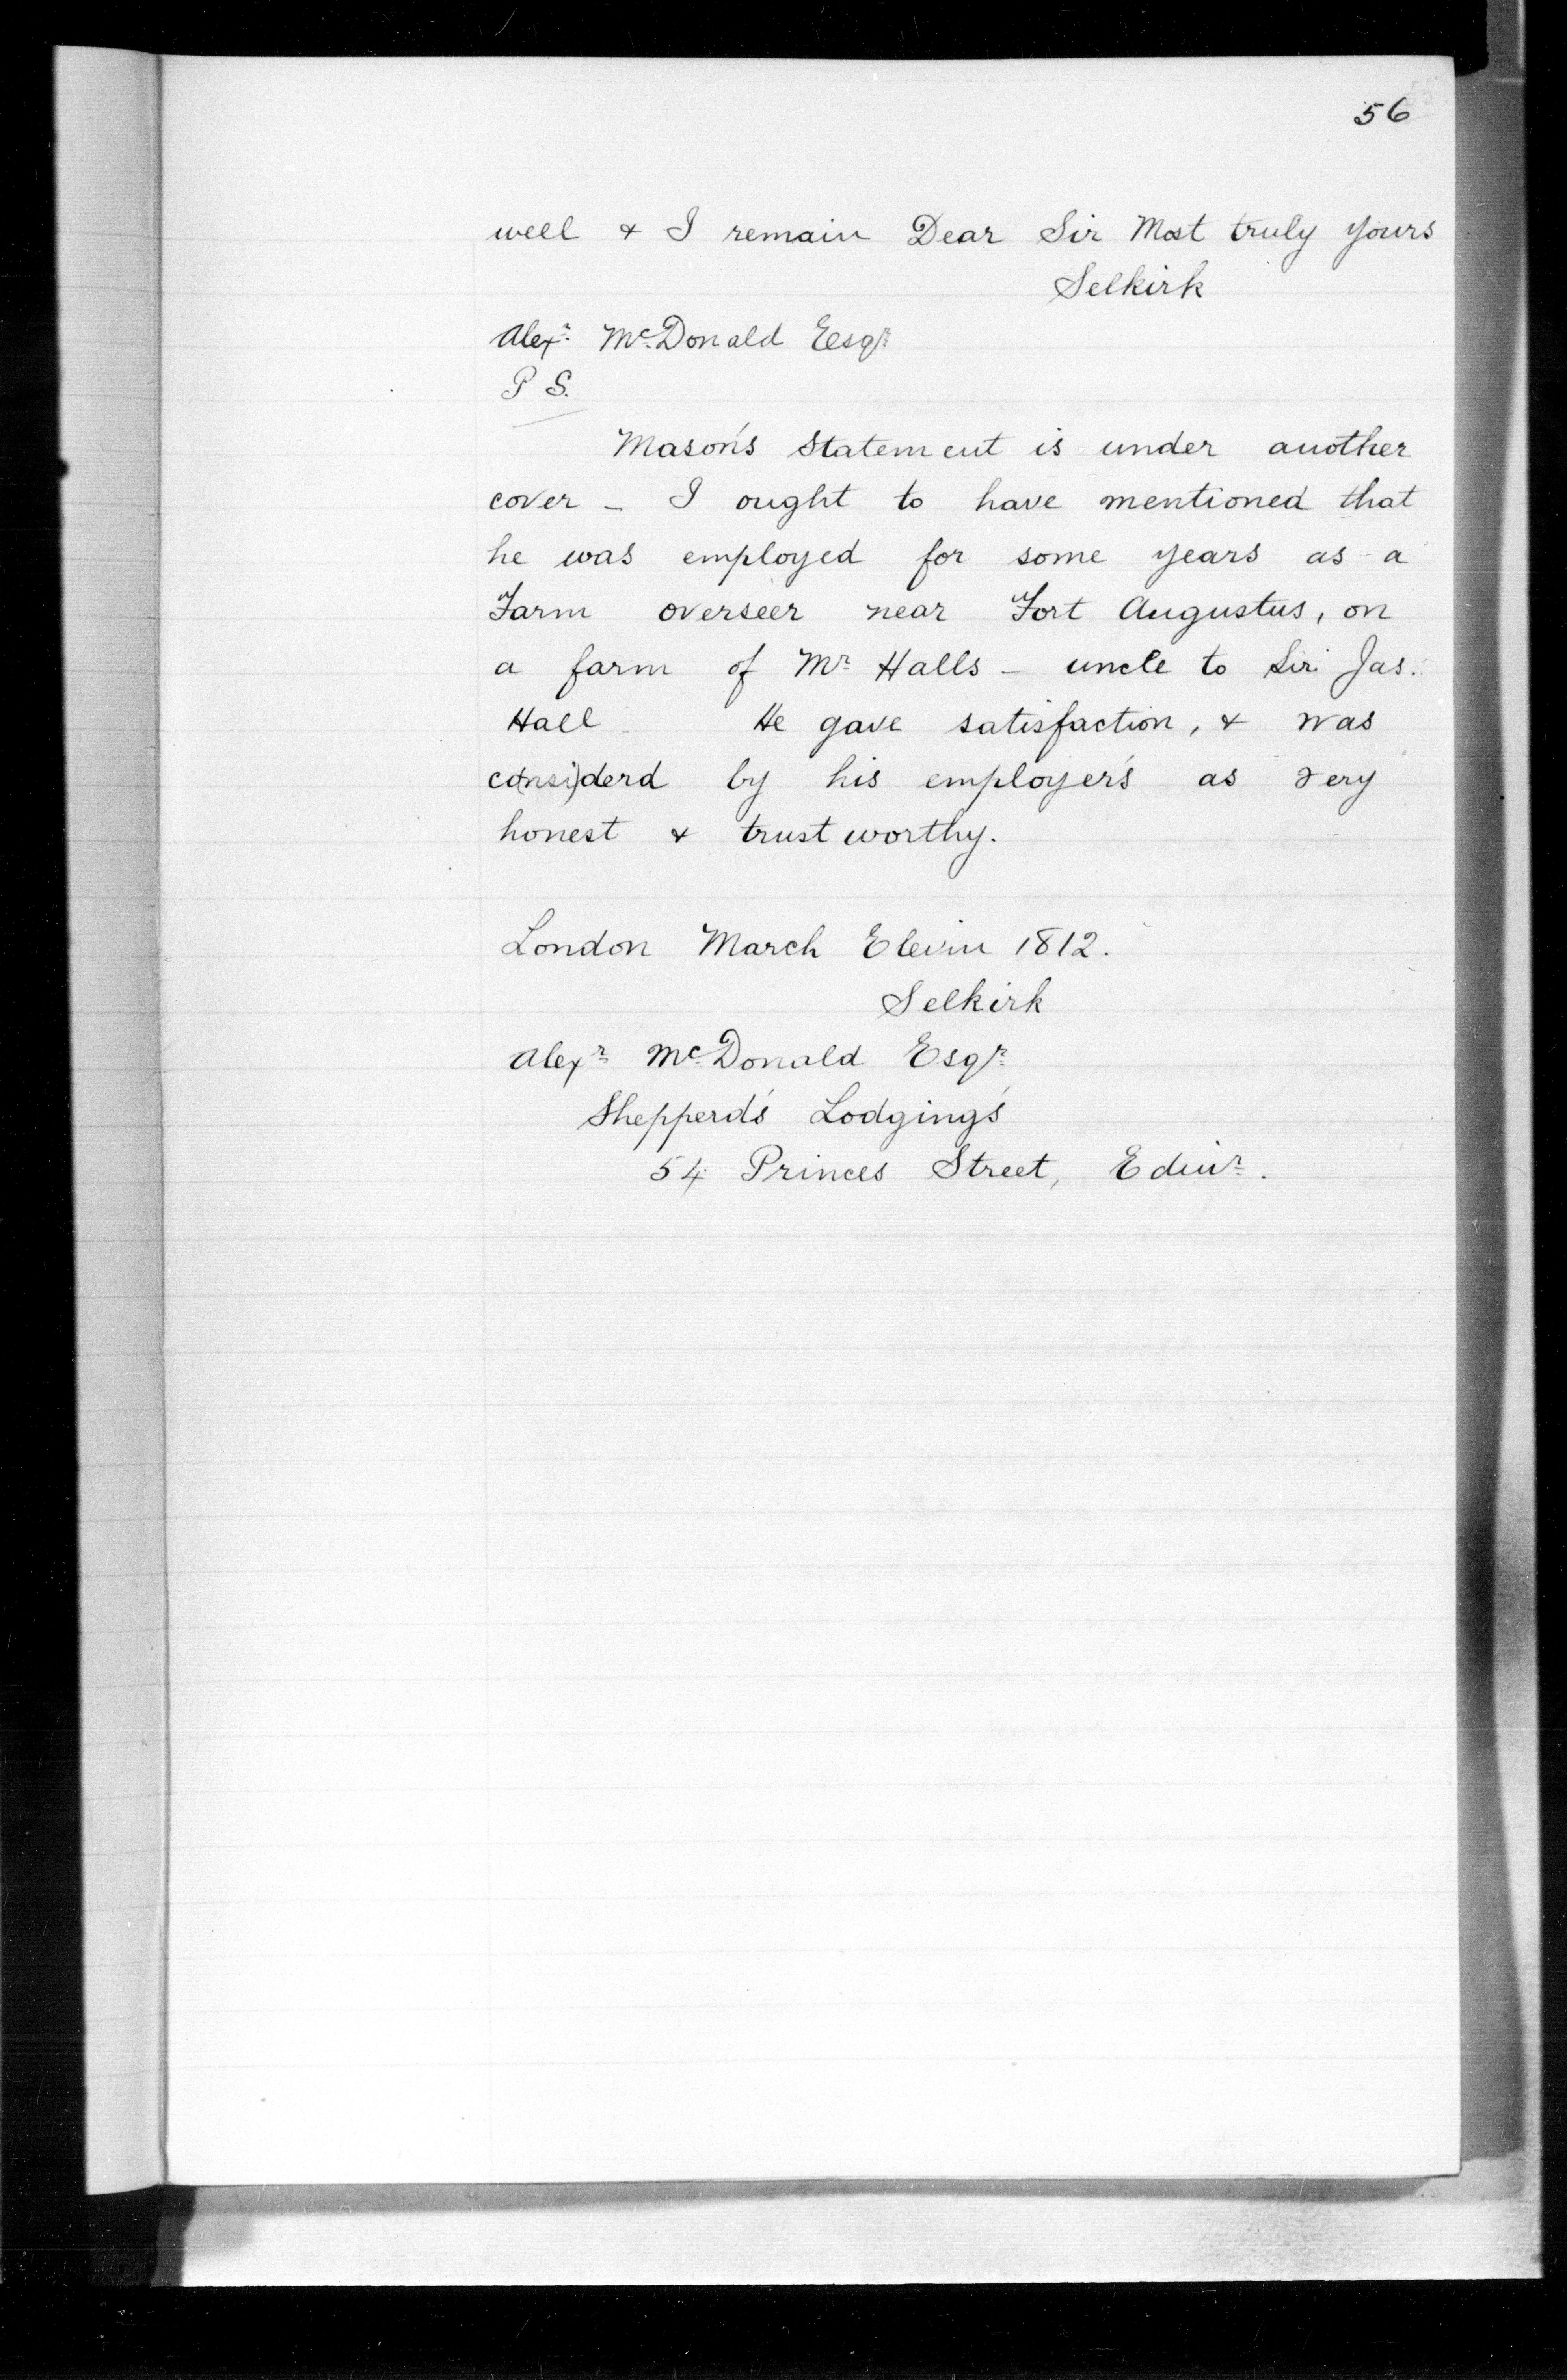 56
well & I remain Dear Sir Most truly yours
Selkirk
Alexr. McDonald Eesqr.
P S.
Mason's Statement is under another
cover - I ought to have mentioned that
he was employed for some years as a
Farm overseer near Fort Augustus, on
a farm of Mr Halls - uncle to Sir Jas.
Hall He gave satisfaction, & was
co(nsi)derd by his employer's as very
honest & trust worthy.
London March Elevin 1812.
Selkirk
Alexr McDonald Esqr.
Shepperd's Lodging's
54 Princes Street, Edinr.